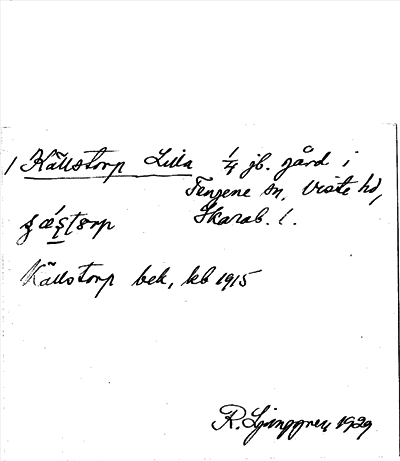 1 Källstorp Lilla 1/4 jb. gård i
Tengene sn, Viste hd,
Skarab. l.
Källstorp bek, kb 1915
R. Ljunggren 1929